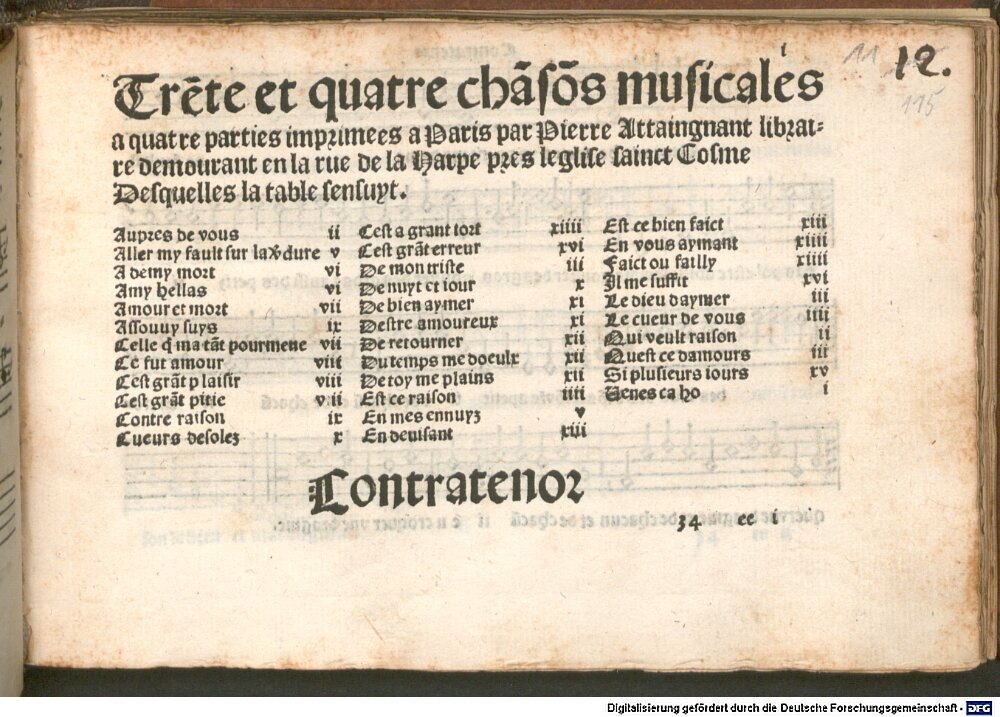 i
11 12.
115
Trēte et quatre chāsōs musicales
a quatre parties imprimees a Paris par Pierre Attaingnant librai=
re demourant en la rue de la Harpe pres leglise sainct Cosme
Desquelles la table sensuyt.
Aupres de vous ii
Aller my fault sur la dure v
A demy mort vi
Amy hellas vi
Amour et mort vii
Assouuy suys ix
Celle q̄ ma tāt pourmene vii
Ce fut amour viii
Cest grāt plaisir viii
Cest grāt pitie vii
Contre raison ix
Cueurs desolez x
Cest a grant tort xiiii
Cest grāt erreur xvi
De mon triste iii
De nuyt et iour x
De bien aymer xi
Destre amoureux xi
De retourner xii
Du temps me doeulx xii
De toy me plains xii
Est ce raison iiii
En mes ennuyz v
En deuisant xiii
Est ce bien faict xiii
En vous aymant xiiii
Faict ou failly xiiii
Il me suffit xvi
Le dieu daymer iii
Le cueur de vous iiii
Qui veult raison ii
Quest ce damours iii
Si plusieurs iours xv
Venes ca ho i
Contratenor
34 ee i
Digitalisierung gefördert durch die Deutsche Forschungsgemeinschaft - DFG